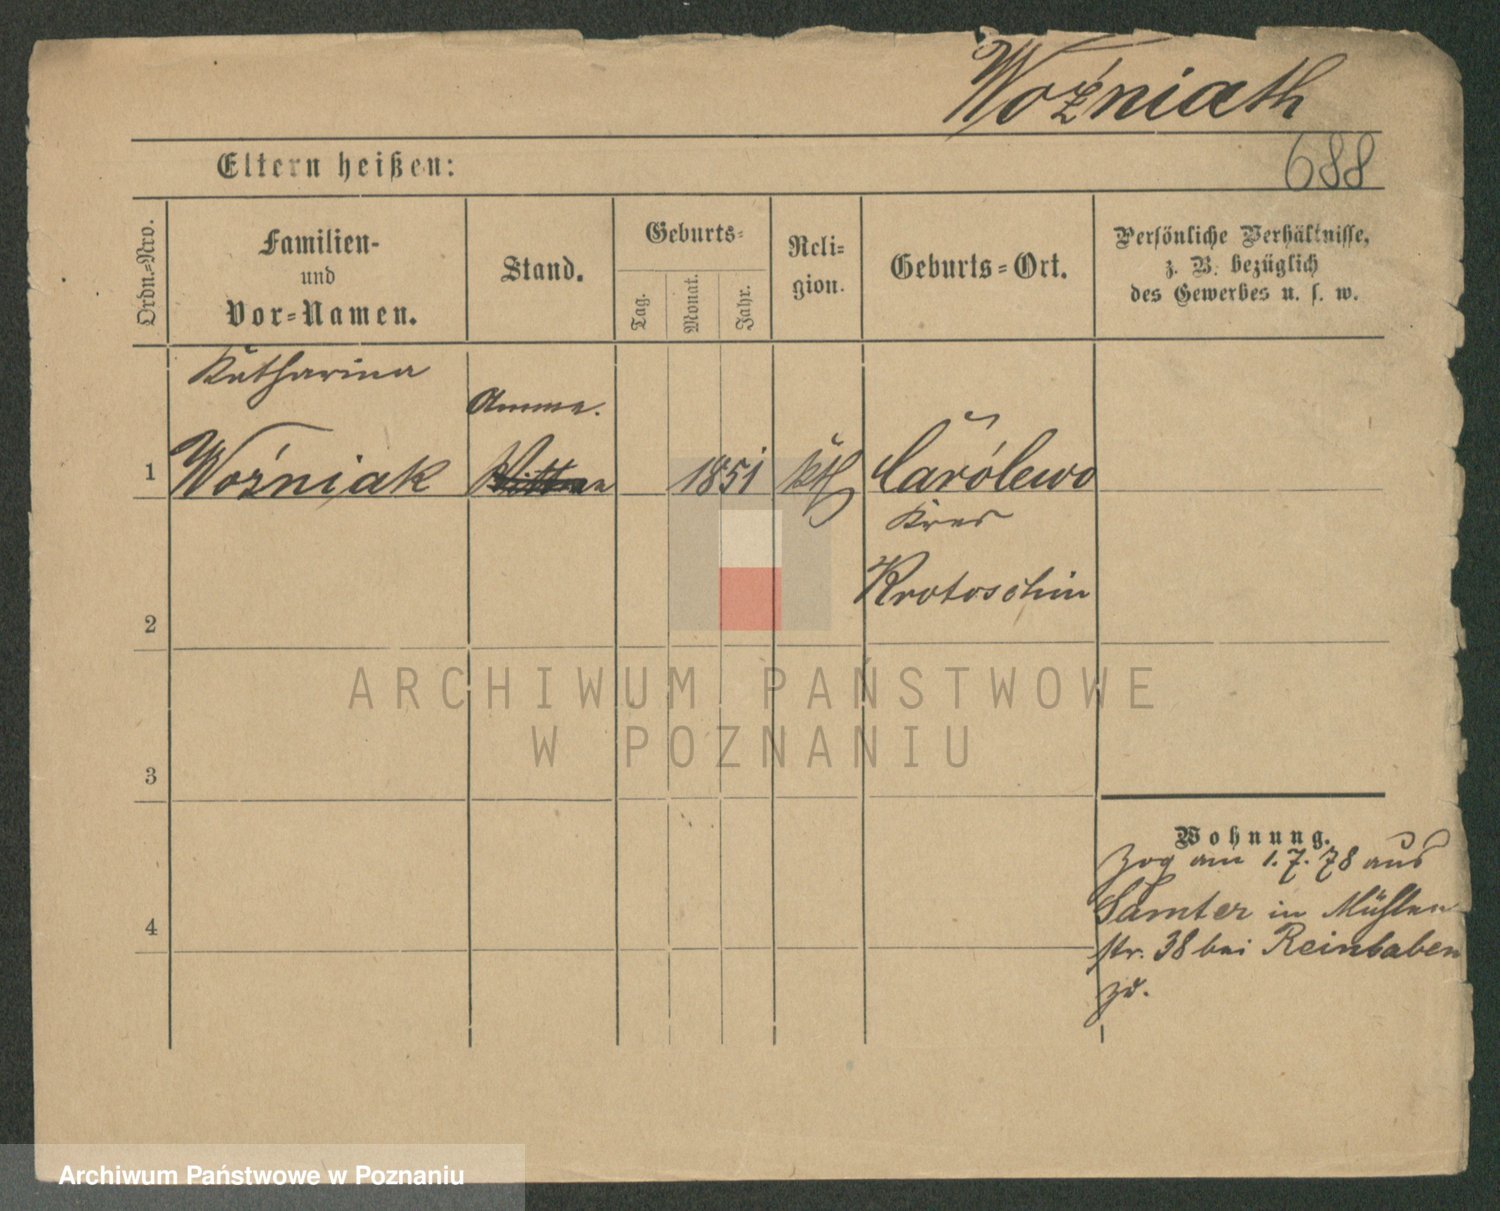 Woźniath
688
Eltern heißen:
Ordn.-Nro.
Familien-
und
Vor-Namen.
Stand.
Geburts-
Tag.
Monat.
Jahr.
Reli-
gion.
Geburts-Ort.
Persönliche Verhältnisse,
z. B. bezüglich
des Gewerbes u. s. w.
Katharina
Amme.
1 Woźniak 1851 kth Carólewo
Kreis
Krotoschin
2
3
4
Wohnung.
Zog am 1.7.78 aus
Samter in Mühlen
str. 38 bei Reinbaben
zu.
ARCHIWUM PAŃSTWOWE
W POZNANIU
Archiwum Państwowe w Poznaniu